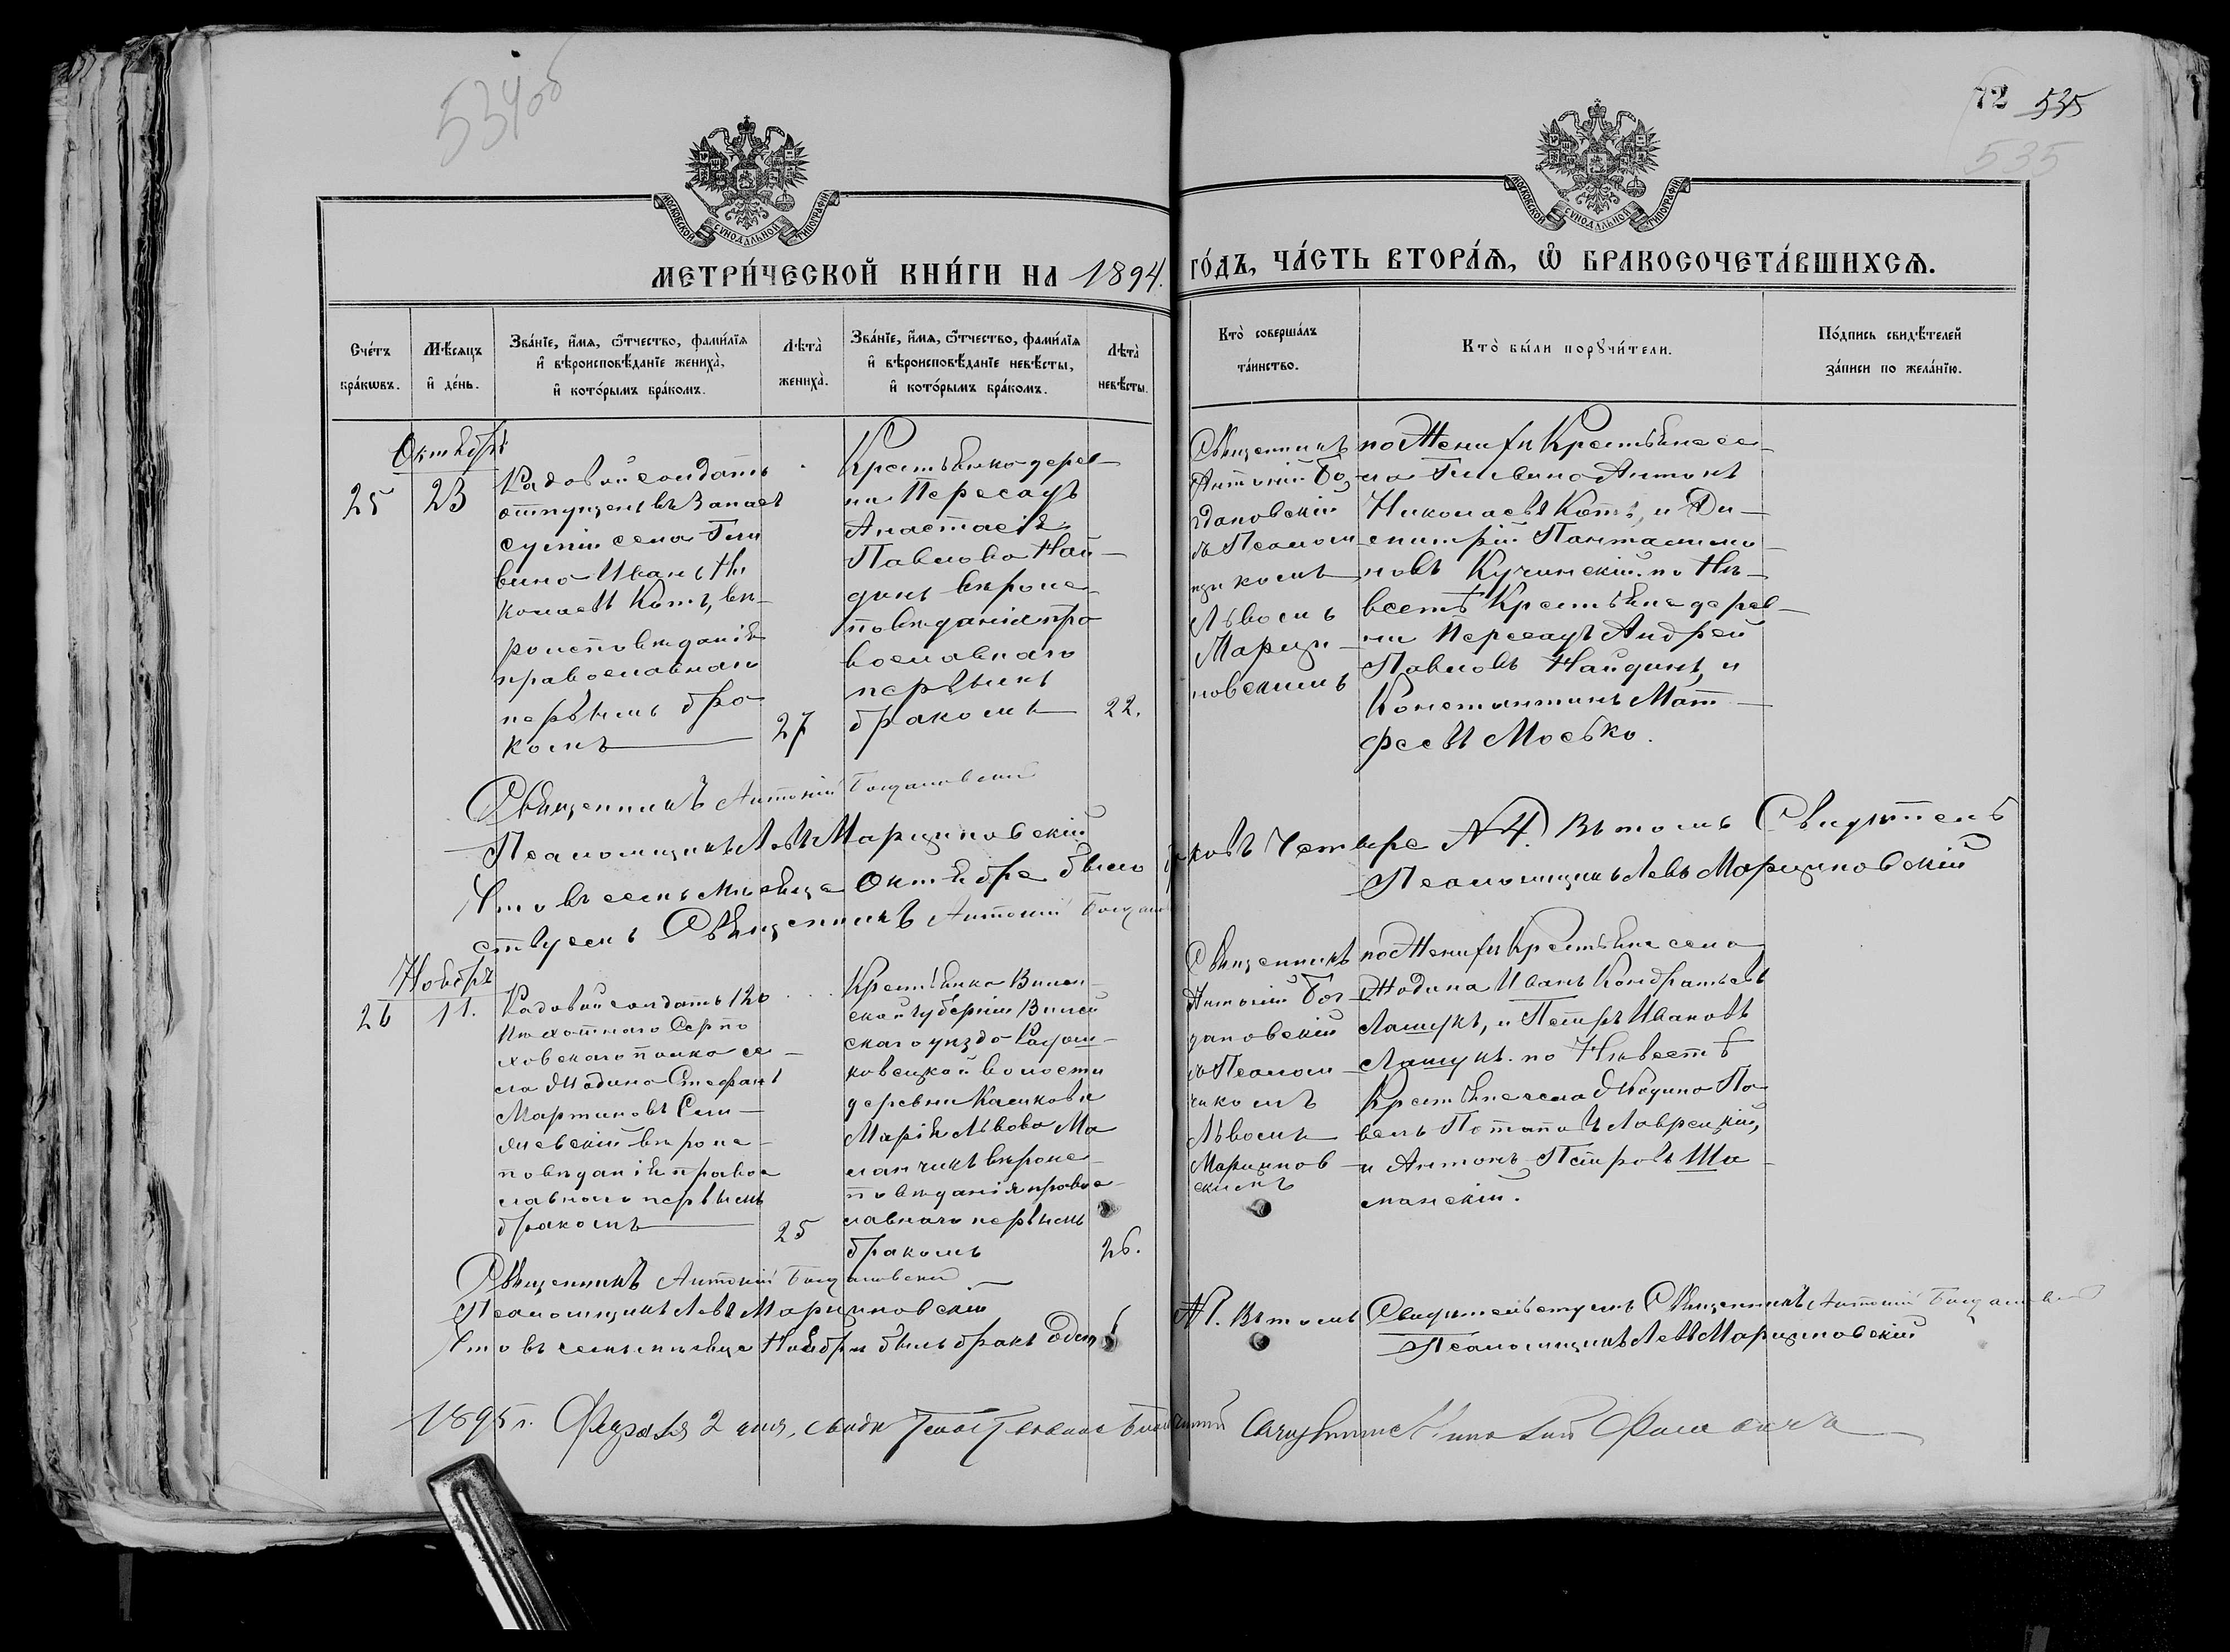 534об
72 535
535
МОСКОВСКОЙ СѴНОДАЛЬНОЙ ТИПОГРАФІИ
МОСКОВСКОЙ СѴНОДАЛЬНОЙ ТИПОГРАФІИ
МЕТРИ́ЧЕСКОЙ КНИ́ГИ НА 1894. ГО́ДЪ, ЧА́СТЬ ВТОРА́Ѧ, Ѿ БРАКОСОЧЕТА́ВШИХСѦ.
Сче́тъ
бра́кѡвъ.
Мѣ́сѧцъ
и҆ де́нь.
Зва́нїе, и҆́мѧ, ѻ҆́тчество, фами́лїѧ
и҆ вѣроисповѣ́данїе жениха̀,
и҆ кото́рымъ бра́комъ.
Лѣта̀
жениха̀.
Зва́нїе, и҆́мѧ, ѻ҆́тчество, фами́лїѧ
и҆ вѣроисповѣ́данїе невѣ́сты,
и҆ кото́рымъ бра́комъ.
Лѣта̀
невѣ́сты.
Кто̀ соверша́лъ
та́инство.
Кто̀ бы́ли порꙋчи́тели.
По́дпись свидѣ́телей
за́писи по жела́нїю.
Октябрь
25
23
Рядовой солдатъ
отпущенъ въ Запасъ
Ѳуніи села Гли
вина Иванъ Ни
колаевъ Котъ, вѣ-
роисповѣданія
православнаго
первымъ бра
комъ
27
Крестьянка дерев-
ни Пересады
Анастасія
Павлова Най-
динъ вѣроис-
повѣданія пра
вославнаго
первымъ
бракомъ
22.
Священникъ
Антоній Бог
дановскій
съ Псалом
щикомъ
Львомъ
Марци-
новскимъ
по Женихѣ Крестьяне се-
ла Гливина Антонъ
Николаевъ Котъ, и Ди-
митрій Панталимо-
новъ Кучинскій. по Не-
вестѣ Крестьяне дерев-
ни Пересады Андрей
Павловъ Найдинъ, и
Константинъ Мат-
феевъ Мосько.
Священникъ Антоній Богдановскій
Псаломщикъ Левъ Марциновскій
Что въ семъ месяце Октябре было браковъ Четыре №4. Въ томъ Свидѣтель
ствуемъ Священникъ Антоній Богдановскій
Псаломщикъ Левъ Марциновскій
Ноябрь
26
11.
Рядовой солдатъ 120
Пехотнаго Серпо
ховскаго полка се-
ла Жодина Стефанъ
Мартиновъ
вѣроис-
повѣданія правос
лавнаго первымъ
бракомъ
25
Крестьянка Вилен-
ской губерніи Вилей
скаго уезда Радош-
ковецкой волости
деревни
Марія Львова Ма
ланчикъ вѣроис-
повѣданія правос-
лавнаго первымъ
бракомъ
26.
Священникъ
Антоній Бог
дановскій
съ Псаломщ
чикомъ
Львомъ
Марцинов
скимъ
по Женихѣ Крестьяне села
Жодина Иванъ Кондратьевъ
Лашукъ, и Петръ Ивановъ
Лашукъ. по Невестѣ
Крестьяне села Жодина Па
велъ Потаповъ Лаврецкій,
и Антонъ Петровъ Ша-
манскій.
Священникъ Антоній Богдановскій
Псаломщикъ Левъ Марциновскій
Что въ семъ месяце Ноябре былъ бракъ Одинъ №1. Въ томъ Свидетельствуемъ Священникъ Антоній Богдановскій
Псаломщикъ Левъ Марциновскій
1895 г. Февраля 2 дня,